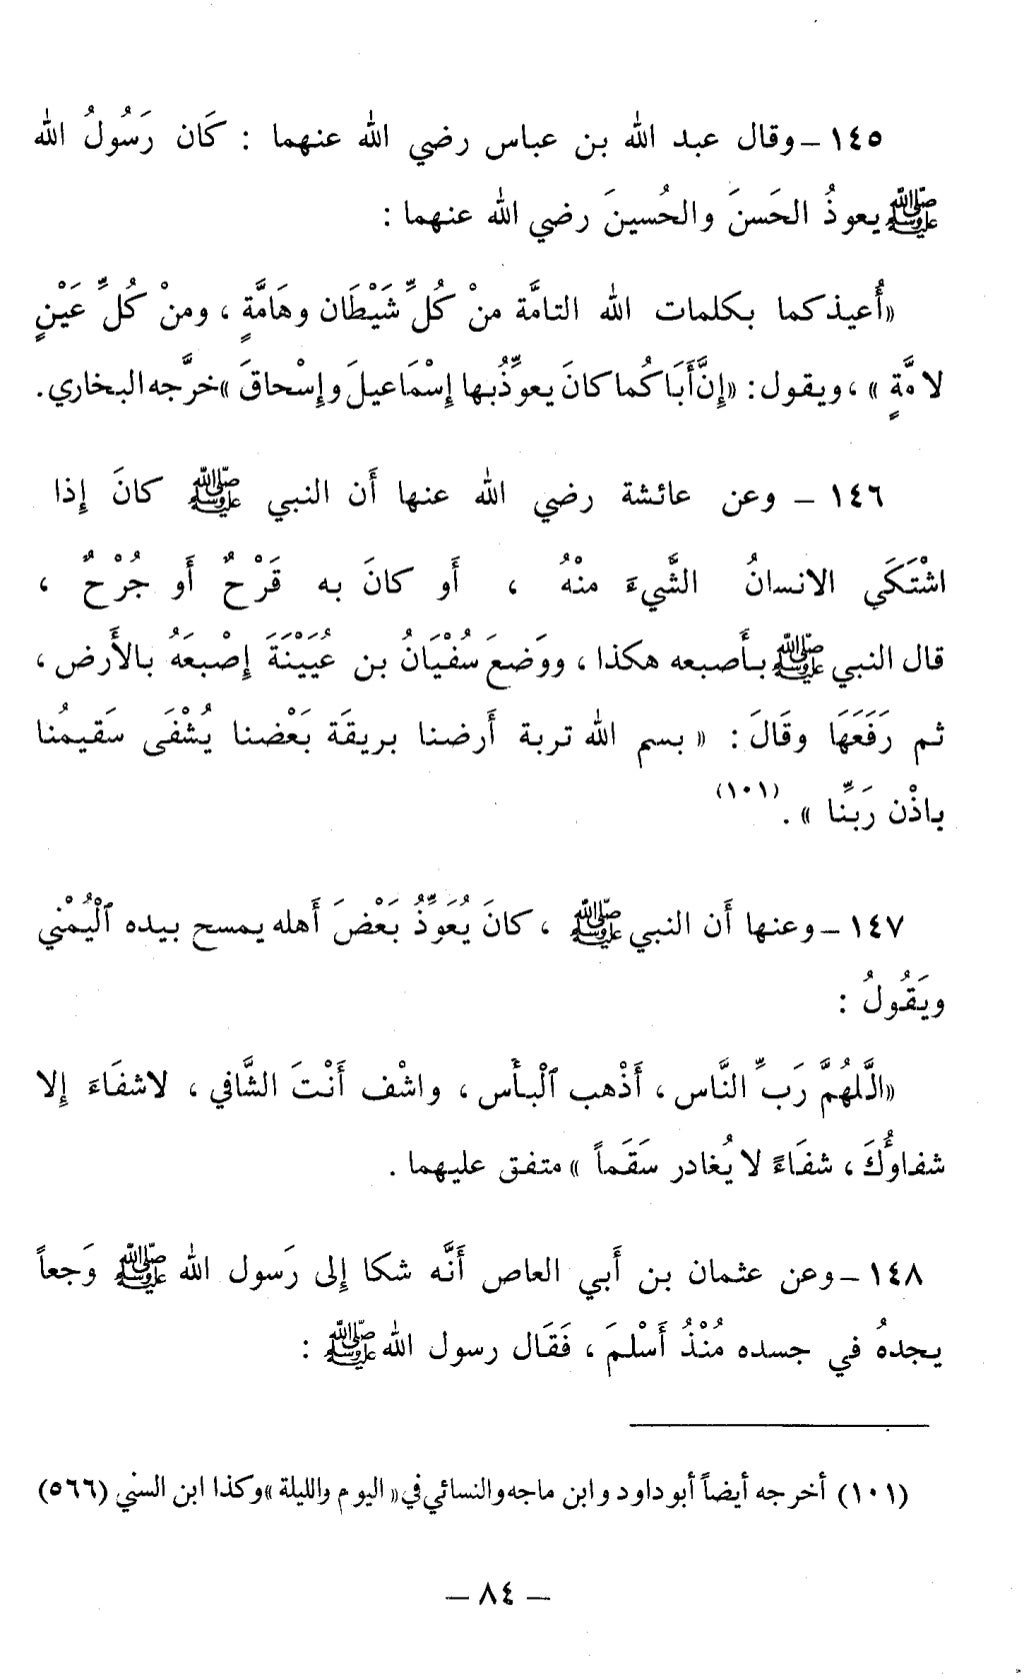 ١٤٥ – وقال عبد الله بن عباس رضي الله عنهما : كَان رَسُولُ الله
ﷺ يعوذُ الحَسنَ والحُسينَ رضي الله عنهما :
«أُعيذكما بكلمات الله التامَّة منْ كُلِّ شَيْطَان وهَامَّةٍ ، ومنْ كُلِّ عَيْنٍ
لامَّةٍ » ، ويقول : «إنَّ أَبَا كُما كانَ يعوِّذُ بها إِسْمَاعيلَ وإِسْحاقَ » خرَّجه البخاري .
١٤٦ – وعن عائشة رضي الله عنها أَن النبي ﷺ كانَ إِذا
اشْتَكَي الانسانُ الشَّيءَ منْهُ ، أَو كانَ به قَرْحٌ أَو جُرْحٌ ،
قال النبي ﷺ بأَصبعه هكذا ، ووَضعَ سُفْيَانُ بن عُيَيْنَةَ إِصْبعَهُ بالأَرض ،
ثم رَفَعَهَا وقَالَ : « بسم الله تربة أَرضنا بريقَة بَعْضنا يُشْفَى سَقيمُنا
باذْن رَبِّنَا » . (١٠١)
١٤٧ – وعنها أَن النبي ﷺ ، كانَ يُعَوِّذُ بَعْضَ أَهله يمسح بيده ٱلْيُمْني
ويَقُولُ :
«الَّلهُمَّ رَبِّ النَّاس ، أَذْهب ٱلْبأْس ، واشْف أَنْتَ الشَّافي ، لاشفَاءَ إِلا
شفاؤُكَ ، شفَاءً لا يُغادر سَقَماً » متفق عليهما .
١٤٨ – وعن عثمان بن أَبي العاص أَنَّه شكا إِلى رَسول الله ﷺ وَجعاً
يجدهُ في جسده مُنْذُ أَسْلمَ ، فَقَال رسول الله ﷺ :
(١٠١) أخرجه أيضاً أبو داود وابن ماجه والنسائي في « اليوم والليلة » وكذا ابن السني (٥٦٦)
– ٨٤ –